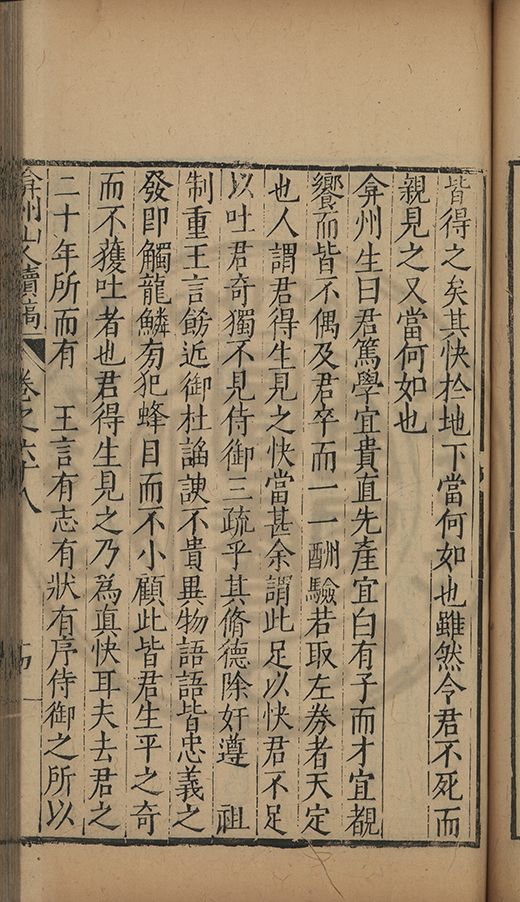 皆得之矣其快於地下當何如也雖然令君不死而
親見之又當何如也
弇州生曰君篤學宜貴直先產宜白有子而才宜覩
饗而皆不偶及君卒而一一酬驗若取左券者天定
也人謂君得生見之快當甚余謂此足以快君不足
以吐君奇獨不見侍御三疏乎其脩德除奸遵 祖
制重王言飭近御杜諂諛不貴異物語語皆忠義之
發即觸龍鱗旁犯蜂目而不小顧此皆君生平之奇
而不獲吐者也君得生見之乃為真快耳夫去君之
二十年所而有 王言有志有狀有序侍御之所以
弇州山人續稿 卷之六十八